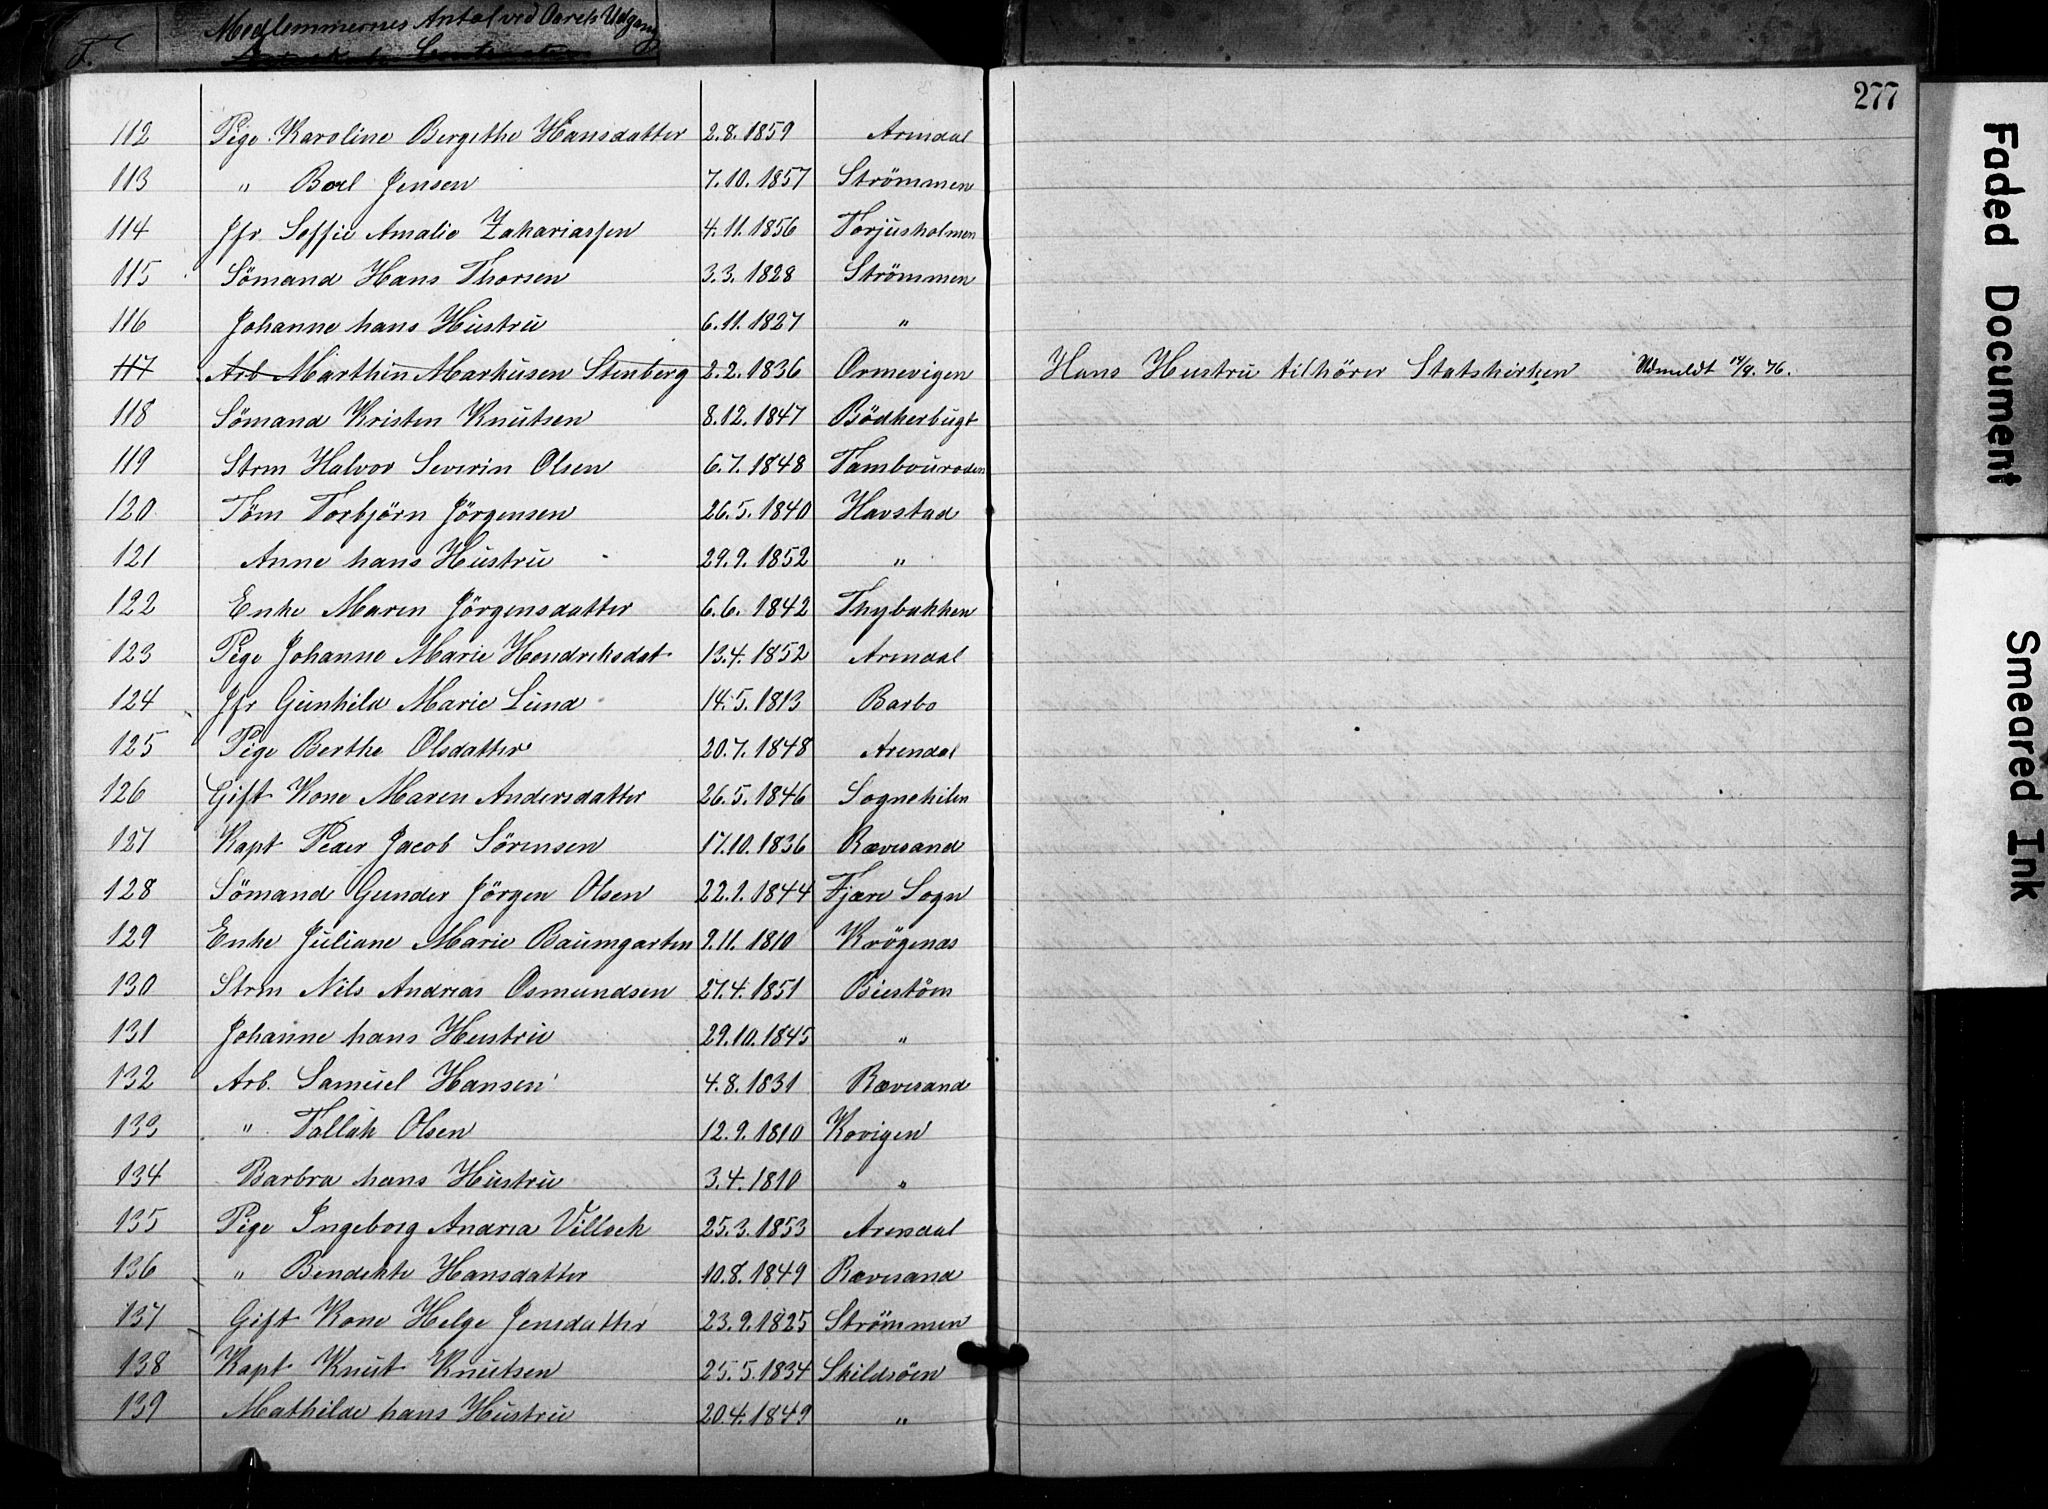 Medlemmernes Antal ved Aarets Udgang
F.
277
112 Pige Karoline Bergithe Hansdatter 2.8.1859 Arendal
113 " Borl Jensen 7.10.1857 Strömmen
114 Jfr Soffie Amalie Zakariassen 4.11.1856 Torjusholmen
115 Sömand Hans Thorsen 3.3.1828 Strömmen
116 Johanne hans Hustru 6.11.1827 "
117 Arb Marthin Markusen Stenberg 2.2.1836 Ormevigen Hans Hustru tilhörer Statskirken Udmeldt 14/9.76.
118 Sömand Kristen Knutsen 8.12.1847 Bödkerbugt
119 Strm Halvor Severin Olsen 6.7.1848 Tambouroden
120 Töm Torbjörn Jörgensen 26.5.1840 Havstad
121 Anne hans Hustru 29.9.1852 "
122 Enke Maren Jörgensdatter 6.6.1842 Thybakken
123 Pige Johanne Marie Hendriksdat 13.4.1852 Arendal
124 Jfr Gunhild Marie Lund 14.5.1813 Barbo
125 Pige Berthe Olsdatter 20.7.1848 Arendal
126 Gift Kone Maren Andersdatter 26.5.1846 Sognekilen
127 Kapt Peder Jacob Sörensen 17.10.1836 Rævesand
128 Sömand Gunder Jörgen Olsen 22.1.1844 Fjære Sogn
129 Enke Juliane Marie Baumgarten 9.11.1810 Krögenæs
130 Strm Nils Andreas Osmundsen 27.4.1851 Biestöm
131 Johanne hans Hustru 29.10.1845 "
132 Arb. Samuel Hansen 4.8.1831 Rævesand
133 " Tallak Olsen 12.9.1810 Kovigen
134 Barbra hans Hustru 3.4.1810 "
135 Pige Ingeborg Andrea Villoch 25.3.1853 Arendal
136 " Bendikte Hansdatter 10.8.1849 Rævesand
137 Gift Kone Helge Jensdatter 23.9.1825 Strömmen
138 Kapt Knut Knutsen 25.5.1834 Skildsöen
139 Mathilde hans Hustru 20.4.1849 "
Faded Document
Smeared Ink